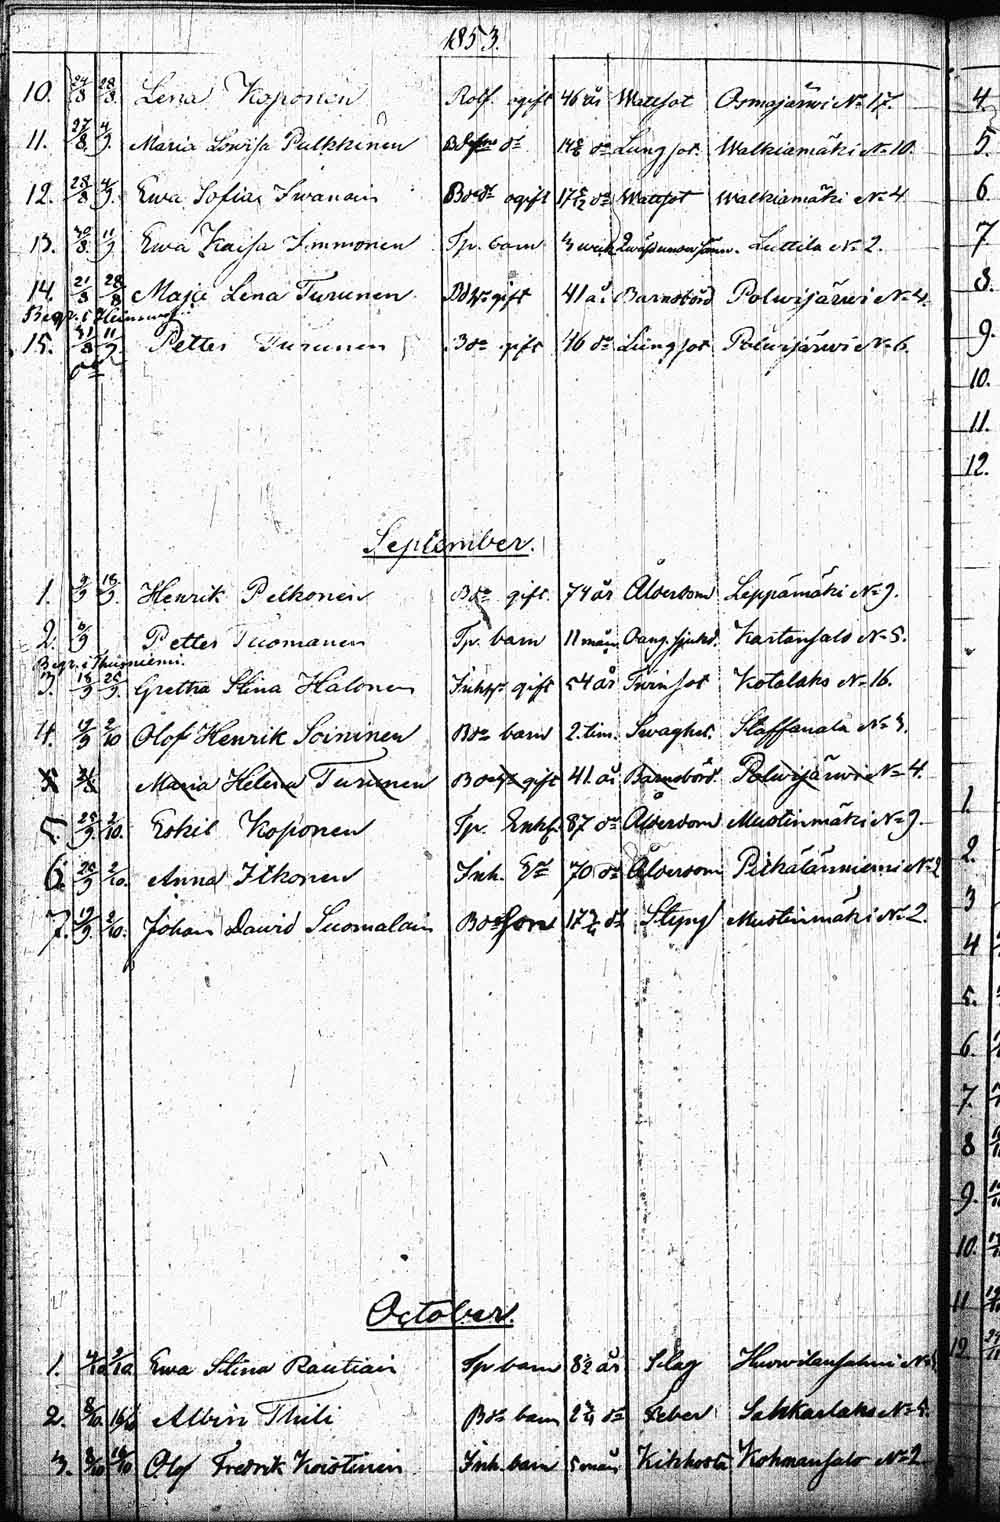 1853.
10. 24/8 28/8 Lena Koponen Rolf. ogift 46 år Wattsot Osmajärwi No 17.
11. 27/8 4/9 Maria Lowisa Pulkkinen do Lungsot. Walkiamäki No 10.
12. 28/8 4/9 Ewa Sofia Iwanain ogift Wattsot Walkiamäki No 4
13. 30/8 11/9 Ewa Kaisa Immonen Tp. barn Luttila No 2.
14. 21/8 28/8 Maja Lena Turunen gift 41 år Barnsbörd Polwijärwi No 4.
Begr. i
15. 31/8 11/9 Petter Turunen gift 46 do Lungsot Polwijärwi No 6.
September.
1. 18/9 Henrik Pelkonen Bde gift. 74 år Ålderdom Leppämäki No 9.
2. Petter Tuomanen Tp. barn 11 mån Kartansalo No 5.
Begr. i Thusniemi.
3. 18/9 25/9 Gretha Stina Halonen gift 54 år Twinsot Kotalaks No 16.
4. 19/9 2/10 Olof Henrik Soininen Bde barn 2. tim. Swaghet. Staffanala No 3.
5 21/8 Maria Helena Turunen gift 41 år Barnsbörd. Polwijärwi No 4.
5. 25/9 2/10. Eskil Koponen Tp. Enkl. 87 do Ålderdom Mustinmäki No 9.
6. 26/9 2/10. Anna Itkonen Inh. Ea 70 do Ålderdom Pitkälänniemi No 2
7. 19/9. 2/10. Johan Dawid Suomalain Bde Son do Mustinmäki No 2.
October.
1. 4/10 9/10. Ewa Stina Rautiain Tp barn 8½ år Slag Huwilansalmi No
2. 8/10. 16/10 Albin Thili Bde barn do Feber Sahkarlaks No 5.
3. 16/10 Olof Fredrik Koistinen Inh. barn 5 mån Kikhosta Kohmansalo No 2
4.
5.
6
7
8.
9.
10.
11.
12.
1.
2.
3
4
5.
6.
7.
8
9.
10.
11
12